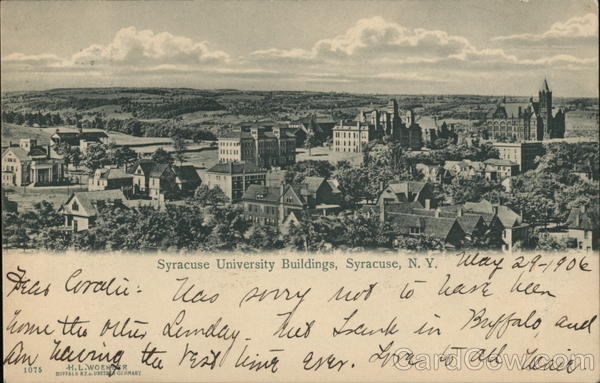 Syracuse University Buildings, Syracuse, N. Y.
May 29-1906
Dear Coralie:- Was sorry not to have been
home the other Sunday. Met Frank in Buffalo and
Am having the best time ever. Love to all
1075
H.L. WOEHLER
BUFFALO N.Y. & DRESDEN GERMANY
CardCow.com